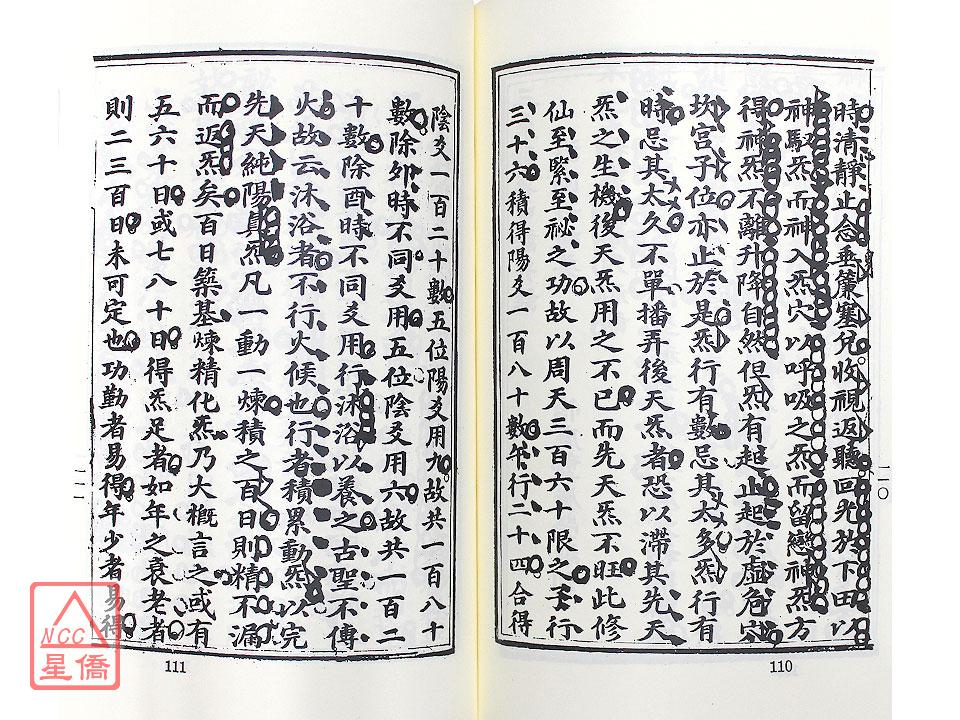 時清靜止念垂簾塞兌收視返聽回光於下田以
神馭炁而神入炁穴以呼吸之炁而留戀神炁方
得神炁不離升降自然但炁有起止起於虛危穴
坎宮子位亦止於是炁行有數忌其太多炁行有
時忌其太久不單播弄後天炁者恐以滯其先天
炁之生機後天炁用之不已而先天炁不旺此修
仙至緊至祕之功故以周天三百六十限之子行
三十六積得陽爻一百八十數午行二十四合得
一一〇
110
陰爻一百二十數五位陽爻用九故共一百八十
數除夘時不同爻用五位陰爻用六故共一百二
十數除酉時不同爻用行沐浴以養之古聖不傳
火故云沐浴者不行火候也行者積累動炁以完
先天純陽眞炁凡一動一煉積之百日則精不漏
而返炁矣百日築基煉精化炁乃大槪言之或有
五六十日或七八十日得炁足者如年之衰老者
則二三百日未可定也功勤者易得年少者易得
一一一
111
NCC
星僑